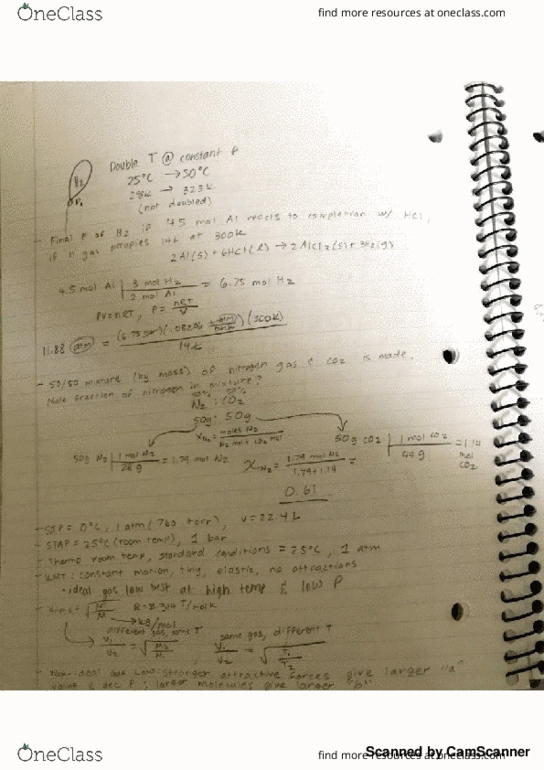 OneClass
find more resources at oneclass.com
Double T @ constant P
25°C → 50°C
298K → 323K
(not doubled)
H₂
- Final P of H₂ if 4.5 mol Al reacts to completion w/ HCl,
if gas occupies 14L at 300K
2Al(s) + 6HCl(l) → 2AlCl₃(s) + 3H₂(g)
4.5 mol Al | 3 mol H₂ / 2 mol Al = 6.75 mol H₂
PV=nRT, P = nRT / V
11.88 atm = (6.75)(.08206)(300K) / 14L
- 50/50 mixture (by mass) of nitrogen gas & CO₂ is made.
Mole fraction of nitrogen in mixture?
50% 50%
N₂ : CO₂
50g : 50g
X N₂ = moles N₂ / N₂ mol + CO₂ mol
50g N₂ | 1 mol N₂ / 28 g = 1.79 mol N₂
X N₂ = 1.79 mol N₂ / 1.79+1.14 =
50g CO₂ | 1 mol CO₂ / 44g = 1.14 mol CO₂
0.61
- STP = 0°C, 1 atm (760 torr), V = 22.4L
- STAP = 25°C (room temp), 1 bar
- Thermo room temp, standard conditions = 25°C, 1 atm
- KMT: constant motion, tiny, elastic, no attractions
• ideal gas law best at high temp & low P
kg/mol
different gas, same T
V₁ / V₂ = √ M₂ / M₁
same gas, different T
V₁ / V₂ = √ T₁ / T₂
- Non-ideal Gas Law: stronger attractive forces give larger "a"
larger molecules give larger "b"
Scanned by CamScanner
OneClass
find more resources at oneclass.com